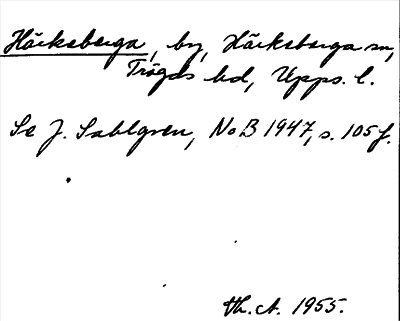 Häcksberga, by, Häcksberga sn,
Trögds hd, Upps. l.
Se J. Sahlgren, NoB 1947, s. 105 f.
Th. A. 1955.